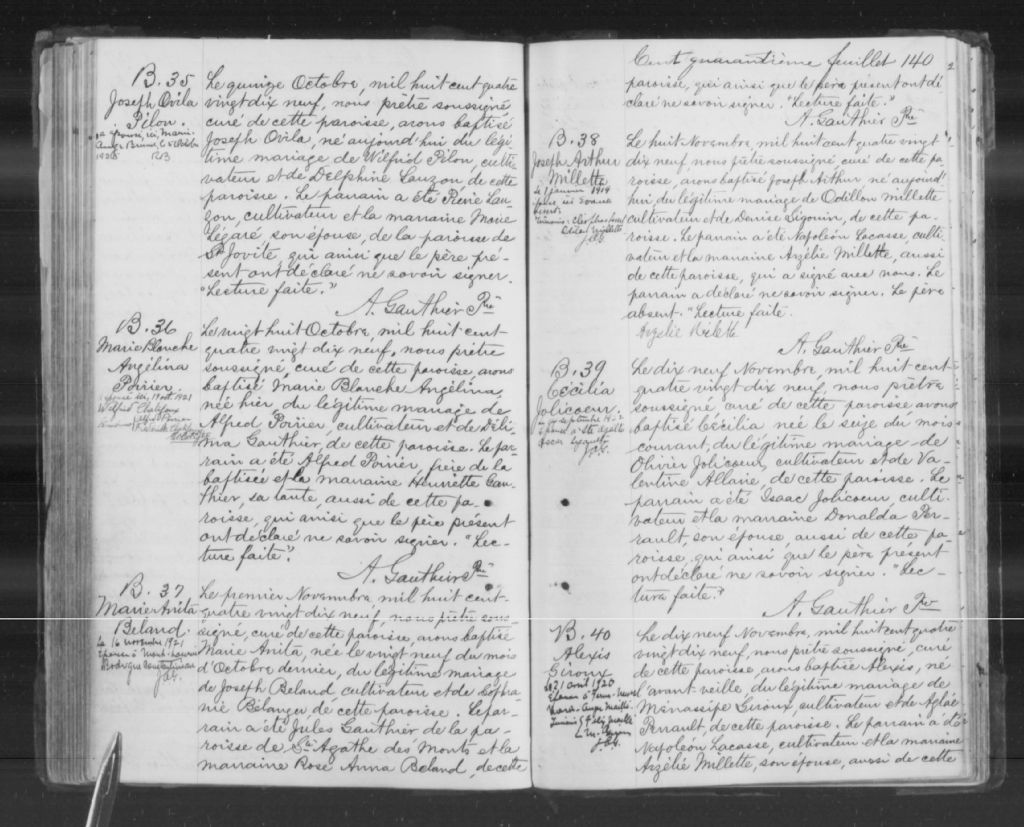 B. 35
Joseph Ovila
Pilon.
Le quinze Octobre, mil huit cent quatre
vingt dix neuf, nous prêtre soussigné
curé de cette paroisse, avons baptisé
Joseph Ovila, né aujourd'hui du légi-
time mariage de Wilfrid Pilon, culti-
vateur et de Delphine Lauzon, de cette
paroisse. Le parrain a été Pierre Lau-
zon, cultivateur et la marraine Marie
Légaré son épouse, de la paroisse de
St Jovite, qui ainsi que le père pré-
sent ont déclaré ne savoir signer.
"Lecture faite."
A. Gauthier Ptre
B. 36
Marie Blanche
Angélina
Poirier.
Le vingt huit Octobre, mil huit cent
quatre vingt dix neuf, nous prêtre
soussigné, curé de cette paroisse, avons
baptisé Marie Blanche Angélina,
née hier, du légitime mariage de
Alfred Poirier, cultivateur et de Déli-
ma Gauthier, de cette paroisse. Le par-
rain a été Alfred Poirier, frère de la
baptisée et la marraine Henriette Gau-
thier, sa tante, aussi de cette pa-
roisse, qui ainsi que le père présent
ont déclaré ne savoir signer. "Lec-
ture faite".
A. Gauthier Ptre
B. 37
Marie Anita
Beland.
le 16 novembre 1921
Le premier Novembre, mil huit cent-
quatre vingt dix neuf, nous prêtre sous-
signé, curé de cette paroisse, avons baptisé
Marie Anita, née le vingt neuf du mois
d'Octobre dernier, du légitime mariage
de Joseph Beland cultivateur et de
Bélanger de cette paroisse. Le par-
rain a été Jules Gauthier de la pa-
roisse de Ste Agathe des Monts et la
marraine Rose Anna Beland, de cette
Cent quarantième feuillet 140
paroisse, qui ainsi que le père présent ont dé
claré ne savoir signer. "Lecture faite."
A. Gauthier Ptre
B. 38
Joseph Arthur
Millette
Le huit Novembre, mil huit cent quatre vingt
dix neuf nous prêtre soussigné curé de cette pa-
roisse, avons baptisé Joseph Arthur né aujourd'
hui du légitime mariage de Odillon Millette
cultivateur et de Denise Sigouin, de cette pa-
roisse. Le parrain a été Napoléon Lacasse, culti-
vateur et la marraine Arzélie Millette, aussi
de cette paroisse, qui a signé avec nous. Le
parrain a déclaré ne savoir signer. Le père
absent. "Lecture faite.
A. Gauthier Ptre
B. 39
Cécilia
Jolicoeur.
Le dix neuf Novembre, mil huit cent
quatre vingt dix neuf, nous prêtre
soussigné curé de cette paroisse avons
baptisé Cécilia née le seize du mois
courant, du légitime mariage de
Olivier Jolicoeur, cultivateur et de Va-
lentine Allaire, de cette paroisse. Le
parrain a été Isaac Jolicoeur, culti-
vateur et la marraine Donalda Per-
rault, son épouse, aussi de cette pa-
roisse, qui ainsi que le père présent
ont déclaré ne savoir signer. "Lec-
ture faite."
A. Gauthier Ptre
B. 40
Alexis
Giroux
Le 21 avril 1920
Le dix neuf Novembre, mil huit cent quatre
vingt dix neuf, nous prêtre soussigné, curé
de cette paroisse, avons baptisé Alexis, né
avant-veille, du légitime mariage de
Giroux, cultivateur et de Aglaé
Perrault, de cette paroisse. Le parrain a été
Napoléon Lacasse, cultivateur et la marraine
Arzélie Millette, son épouse, aussi de cette